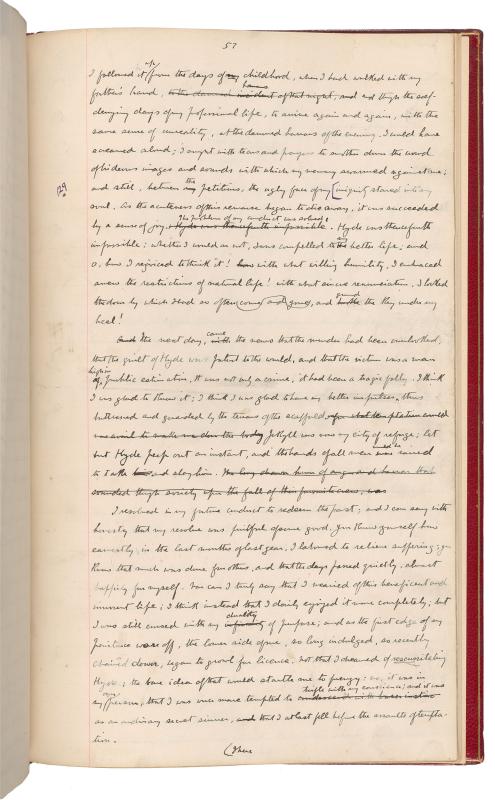 57
I followed it up from the days of my childhood, when I had walked with my
father's hand, to the damned incident of that night, and and through the self-
denying days of my professional life, to arrive again and again, with the
same sense of unreality, at the damned horrors of the evening. I could have
screamed aloud; I sought with tears and prayers to smother down the crowd
of hideous images and sounds with which my memory swarmed against me;
129
and still, between the petitions, the ugly face of my iniquity stared into my
soul. As the acuteness of this remorse began to die away, it was succeeded
the problem of my conduct was solved.
by a sense of joy. Hyde was thenceforth impossible. Hyde was thenceforth
impossible; whether I would or not, I was compelled to my better life; and
O, how I rejoiced to think it! with what willing humility, I embraced
anew the restrictions of natural life! with what sincere renunciation, I locked
the door by which I had so often come and gone, and ground the key under my
heel!
The next day, came the news that the murder had been overlooked,
that the guilt of Hyde was patent to the world, and that the victim was a man
high in public estimation. It was not only a crime, it had been a tragic folly. I think
I was glad to know it; I think I was glad to have my better impulses thus
buttressed and guarded by the terrors of the scaffold.
Jekyll was now my city of refuge; let
but Hyde peep out an instant, and the hands of all men would be raised
to take and slay him.
I resolved in my future conduct to redeem the past; and I can say with
honesty that my resolve was fruitful of some good. You know yourself how
earnestly, in the last months of last year, I laboured to relieve suffering; you
know that much was done for others, and that the days passed quietly, almost
happily for myself. Nor can I truly say that I wearied of this beneficent and
innocent life; I think instead that I daily enjoyed it more completely; but
I was still cursed with my duality of purpose; and as the first edge of my
penitence wore off, the lower side of me, so long indulged, so recently
chained down, began to growl for licence. Not that I dreamed of resuscitating
Hyde; the bare idea of that would startle me to frenzy: no, it was in
my own person, that I was once more tempted to trifle with my conscience; and it was
as an ordinary secret sinner, that I at last fell before the assaults of tempta-
tion.
(There